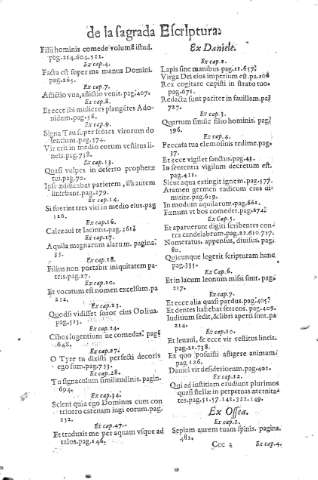 de la sagrada Escriptura:
Filii hominis comede volumē istud.
pag.
Ex cap.4.
Facta est super me manus Domini.
pag.265.
Ex cap.7.
Afflictio vna, afflictio venit. pag.407.
Ex cap.8.
Et ecce ibi mulieres plangētes Ado-
nidem. pag.56.
Ex cap.9.
Signa Tau super frontes virorum do
lentium. pag.174.
Vir erit in medio eorum vestitus li-
neis. pag.738.
Ex cap.13.
Quasi vulpes in deserto prophetæ
tui. pag.70.
Ipse ædificabat parietem, illi autem
liniebant. pag.179.
Ex cap.14.
Si fuerint tres viri in medio eius. pag
120.
Ex cap.16.
Calceaui te Iacintis. pag.161.
Ex cap.17.
Aquila magnarum alarum. pagina
35.
Ex cap.18.
Filius non portabit iniquitatem pa-
tris. pag.27.
Ex cap.20.
Et vocatum est nomen excelsum. pa
212.
Ex cap.23.
Quod si vidisset soror eius Ooliua.
pag.313.
Ex cap.24.
Cibos lugentium ne comedes. pag.
642.
Ex cap.27.
O Tyre tu dixisti perfecti decoris
ego sum. pag.733.
Ex cap.28.
Tu signaculum similitudinis. pagin.
694.
Ex cap.34.
Scient quia ego Dominus cum con
triuero catenam iugi eorum. pag.
252.
Ex cap.47.
Et traduxit me per aquam vsque ad
talos. pag.146.
Ex Daniele.
Ex cap.2.
Lapis sine manibus. pag.21.657.
Ex cap.3.
Quartum similis filio hominis. pag.
596.
Ex cap.4.
Peccata tua elemosinis redime. pag.
37.
Et ecce vigil et sanctus. pag.41.
In sententia vigilum decretum est.
pag.411.
Attamen germen radicum eius di-
mitte. pag.619.
Ex cap.5.
Et apparuerunt digiti scribentes con
tra candelabrum. pag.21.610.737.
Numeratus, appensus, diuisus. pag.
80.
Quicunque legerit scripturam hanc
pag.335.
Ex cap.6.
Et in lacum leonum missi sunt. pag.
217.
Ex cap.7.
Et ecce alia quasi pardus. pag.405
Et dentes habebat ferreos. pag.406.
Iudicium sedit, & libri aperti sunt. pa
214.
Ex cap.10.
Et leuaui, & ecce vir vestitus lineis.
pag.21.738.
Daniel vir desideriorum. pag.401.
Ex cap.12.
Qui ad iustitiam erudiunt plurimos
quasi stellæ in perpetuas æternita-
tes. pag.51.57.141.322.149.
Ex Osea.
Ex cap.2.
Sepiam autem tuam spinis. pagina
482.
Ccc 4 Ex cap.4.